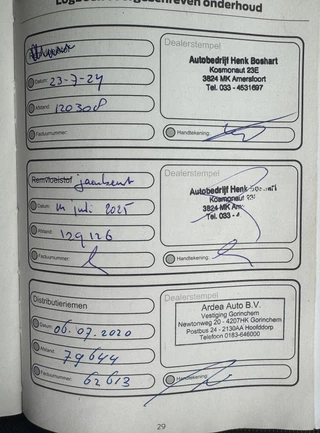 Logboek voorgeschreven onderhoud
Dealerstempel
Autobedrijf Henk Boshart
Kosmonaut 23E
3824 MK Amersfoort
Tel. 033 - 4531697
Datum: 23-7-24
Afstand: 120308
Factuurnummer:
Handtekening:
Remvloeistof jaarbeurt
Dealerstempel
Autobedrijf Henk
Kosmonaut 23E
3824 MK Am
Tel. 033 - 4
Datum: 14 juli 2025
Afstand: 129126
Factuurnummer:
Handtekening:
Distributieriemen
Dealerstempel
Ardea Auto B.V.
Vestiging Gorinchem
Newtonweg 20 - 4207HK Gorinchem
Postbus 24 - 2130AA Hoofddorp
Telefoon 0183-646000
Datum: 06.07.2020
Afstand: 79644
Factuurnummer: 62613
Handtekening:
29